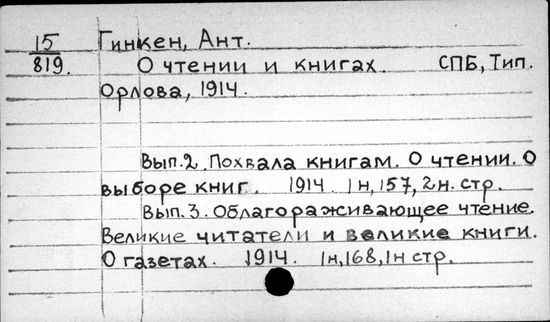 15 Гинкен, Ант.
819. О чтении и книгах. СПБ, Тип.
Орлова, 1914.
Вып.2. Похвала книгам. О чтении. О
выборе книг. 1914. 1н, 157, 2н. стр.
Вып.3. Облагораживающее чтение.
Великие читатели и великие книги.
О газетах. 1914. 1н, 168, 1н стр.